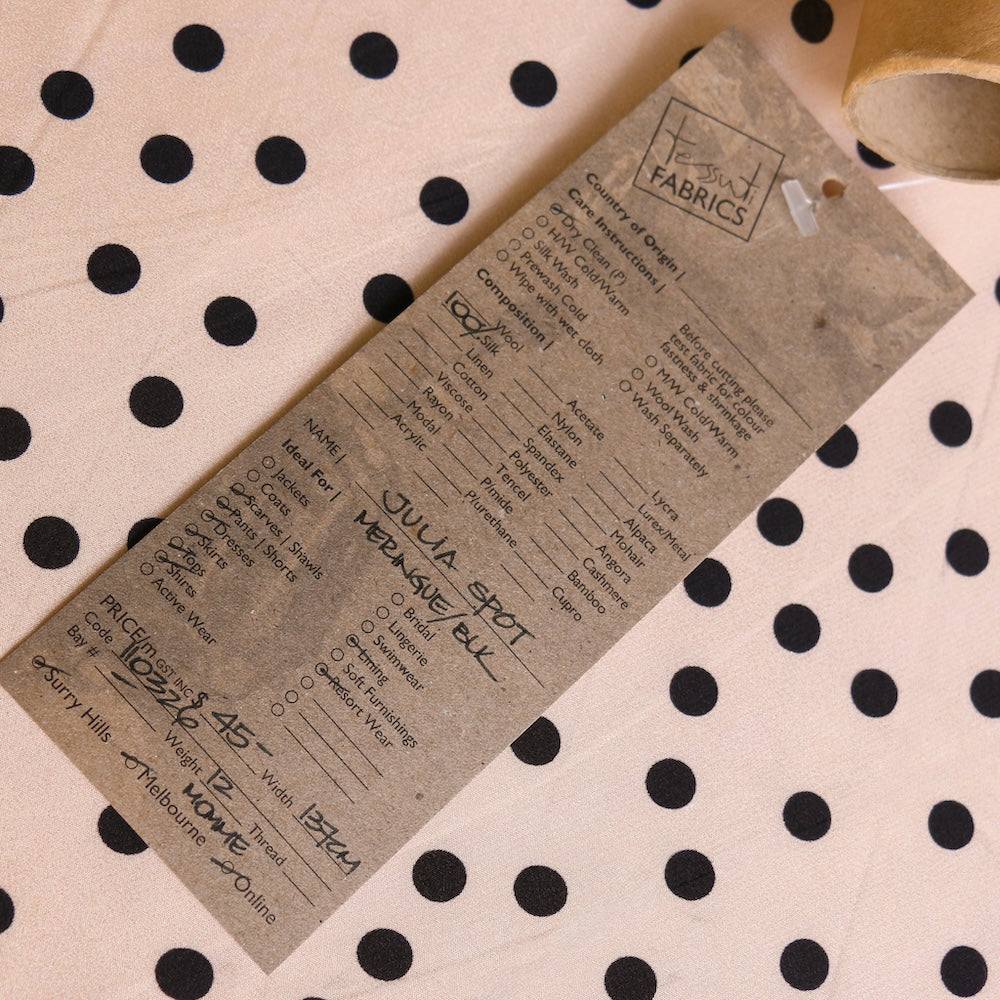 Tessuti
FABRICS
Country of Origin |
Care Instructions |
Dry Clean (P)
H/W Cold/Warm
Silk Wash
Prewash Cold
Wipe with wet cloth
Before cutting please
test fabric for colour
fastness & shrinkage
M/W Cold/Warm
Wool Wash
Wash Separately
Composition |
Wool
100% Silk
Linen
Cotton
Viscose
Rayon
Modal
Acrylic
Acetate
Nylon
Elastane
Spandex
Polyester
Tencel
P/mide
P/urethane
Lycra
Lurex/Metal
Alpaca
Mohair
Angora
Cashmere
Bamboo
Cupro
NAME | JULIA SPOT
MERINGUE/BLK
Ideal For |
Jackets
Coats
Scarves | Shawls
Pants | Shorts
Dresses
Skirts
Tops
Shirts
Active Wear
Bridal
Lingerie
Swimwear
Lining
Soft Furnishings
Resort Wear
PRICE/m GST INC. $ 45-
Code 1103326
Bay #
Width 137CM
Weight 12
MOMME
Thread
Surry Hills
Melbourne
Online